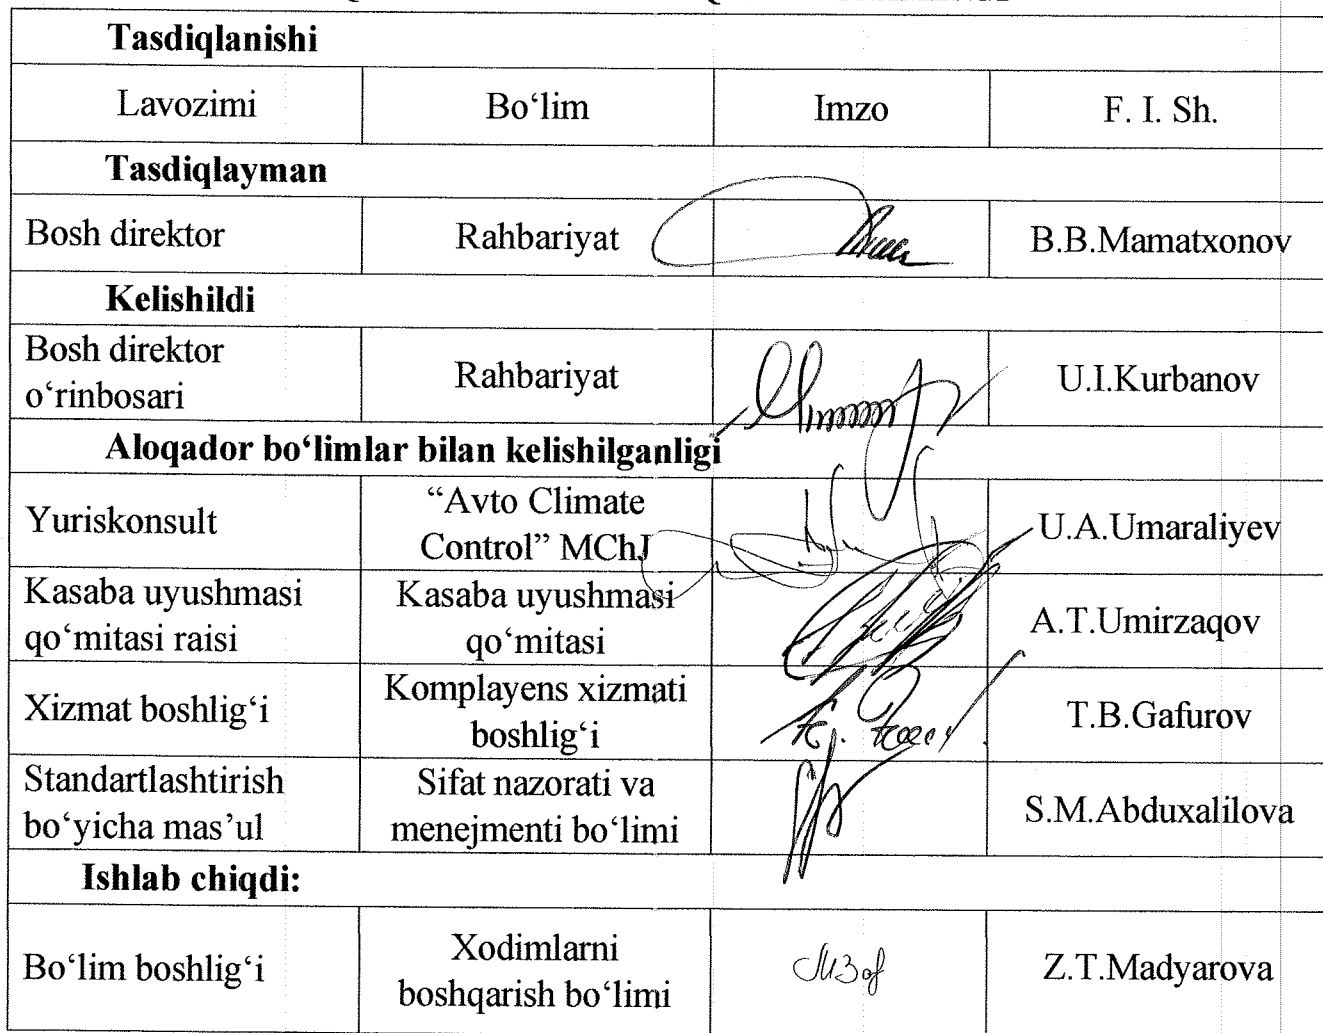 Tasdiqlanishi
Lavozimi Bo‘lim Imzo F. I. Sh.
Tasdiqlayman
Bosh direktor Rahbariyat B.B.Mamatxonov
Kelishildi
Bosh direktor
o‘rinbosari Rahbariyat U.I.Kurbanov
Aloqador bo‘limlar bilan kelishilganligi
Yuriskonsult “Avto Climate
Control” MChJ U.A.Umaraliyev
Kasaba uyushmasi
qo‘mitasi raisi Kasaba uyushmasi
qo‘mitasi A.T.Umirzaqov
Xizmat boshlig‘i Komplayens xizmati
boshlig‘i T.B.Gafurov
Standartlashtirish
bo‘yicha mas’ul Sifat nazorati va
menejmenti bo‘limi S.M.Abduxalilova
Ishlab chiqdi:
Bo‘lim boshlig‘i Xodimlarni
boshqarish bo‘limi Z.T.Madyarova